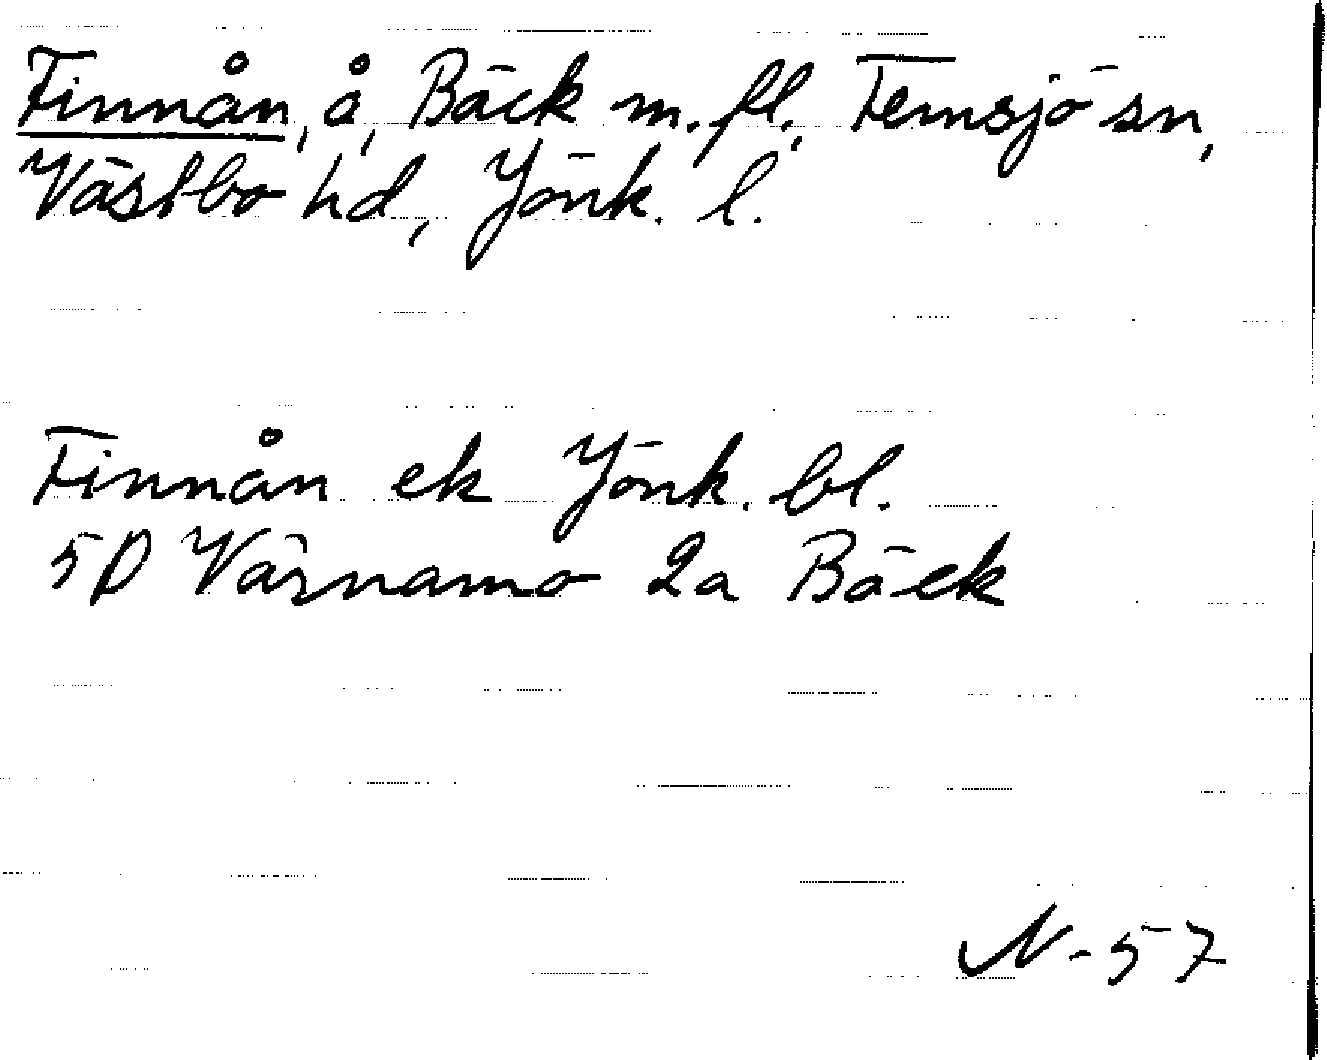 Finnån, å, Bäck m. fl., Femsjö sn,
Västbo hd, Jönk. l.
Finnån ek Jönk. bl.
5D Värnamo 2a Bäck
N-57